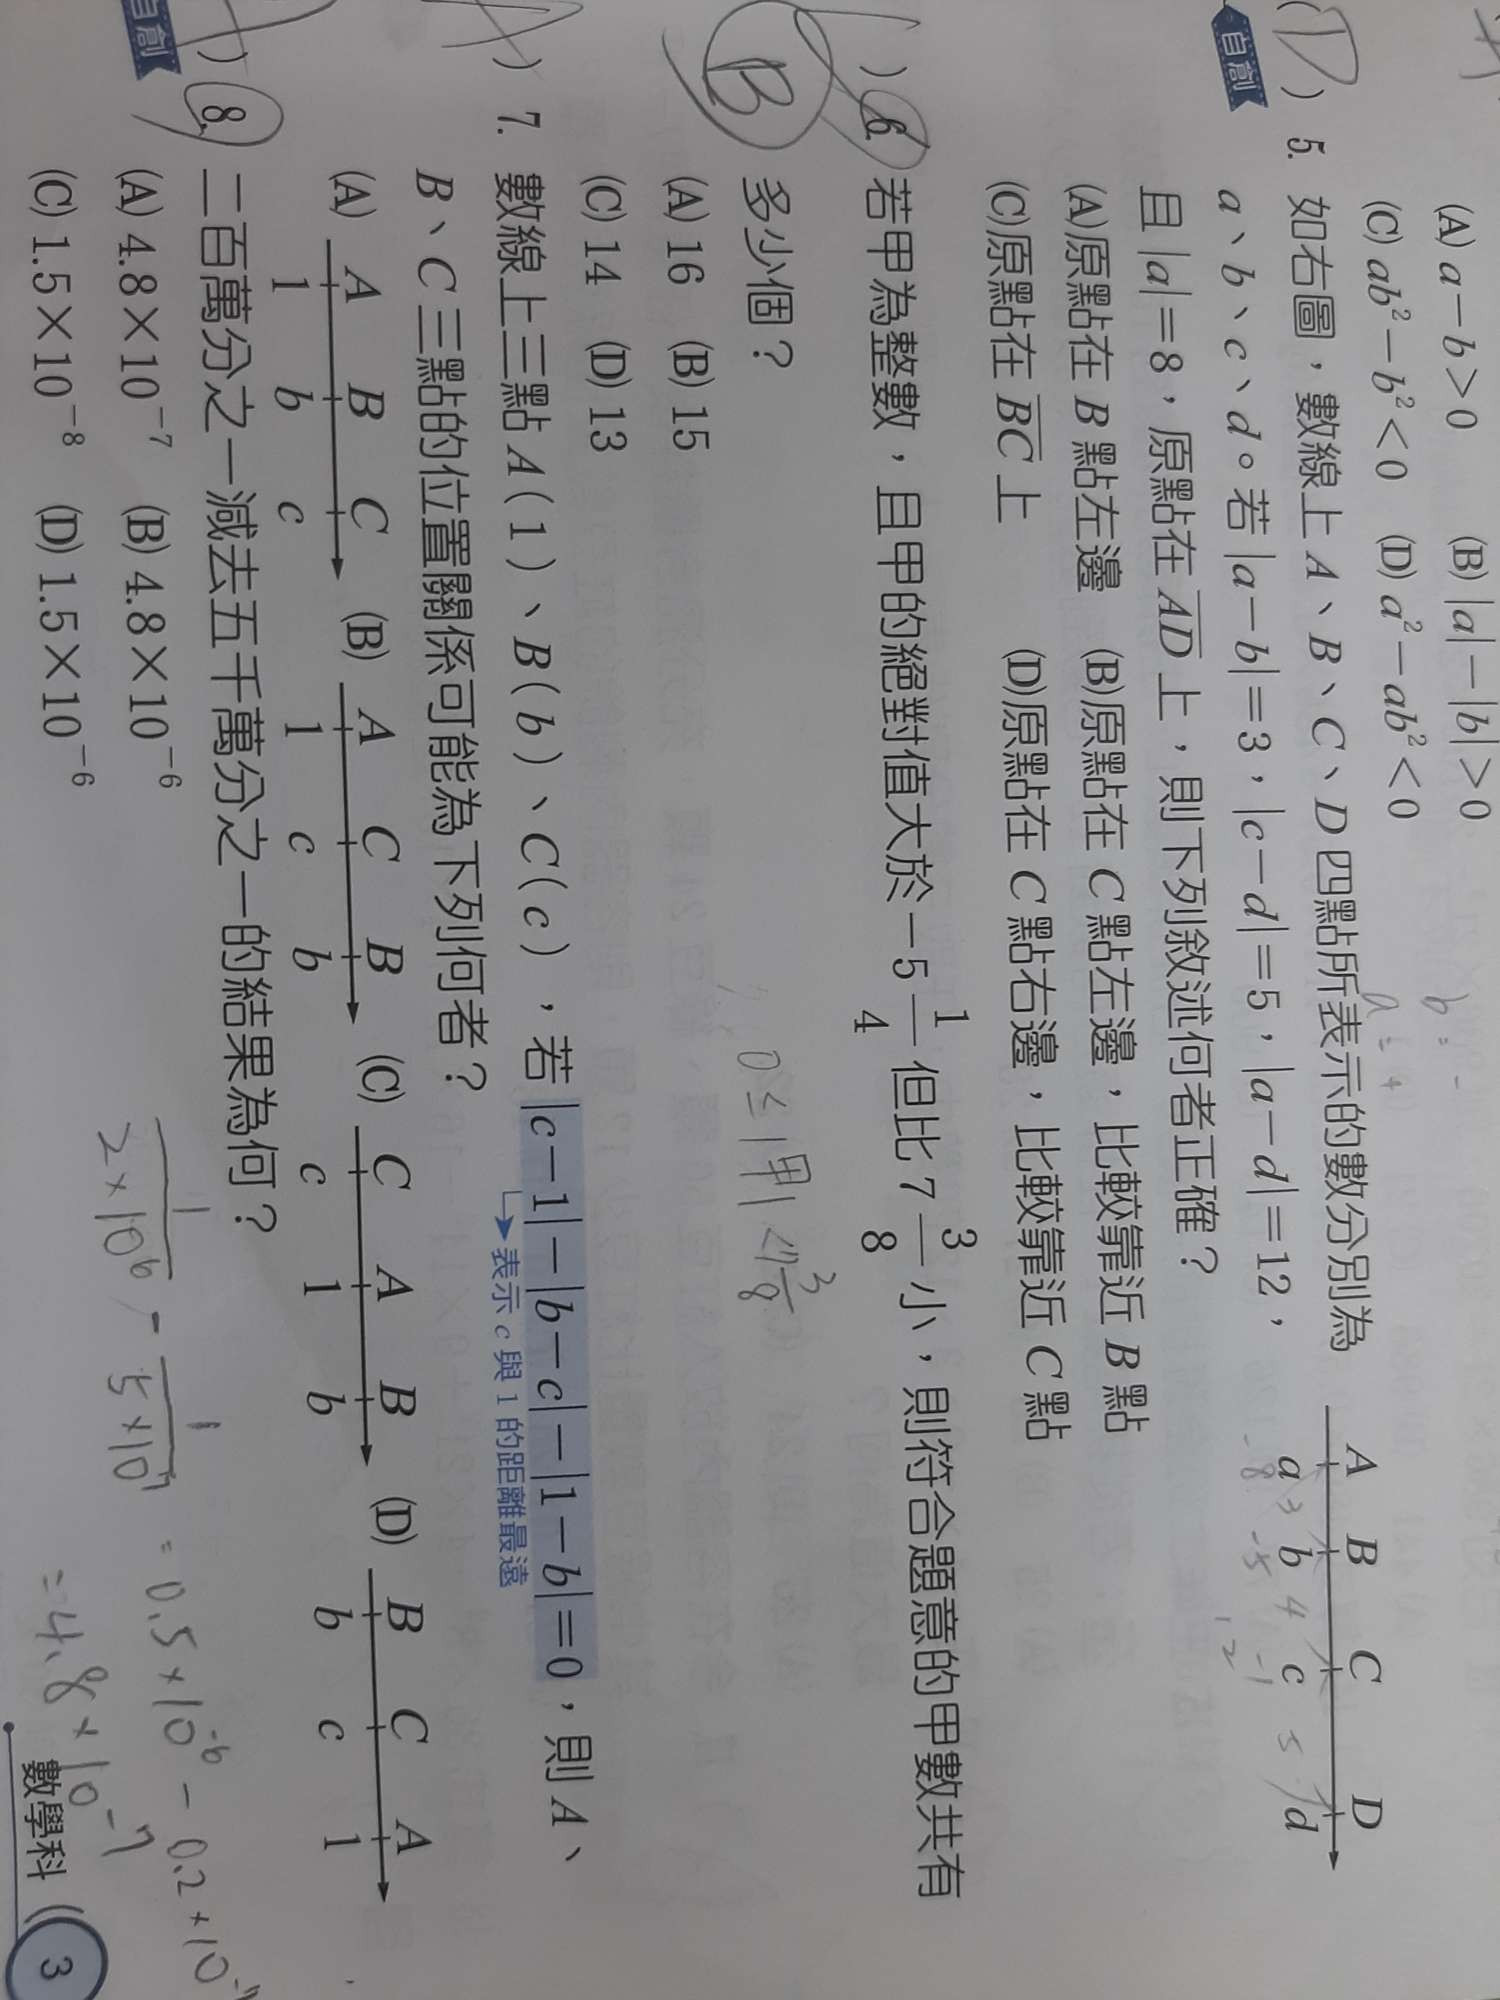 (A) a－b＞0 (B) |a|－|b|＞0
(C) ab²－b²＜0 (D) a²－ab²＜0
b =
a =
(D) 5. 如右圖，數線上 A、B、C、D 四點所表示的數分別為
自創
a、b、c、d。若 |a－b|＝3，|c－d|＝5，|a－d|＝12，
且 |a|＝8，原點在 AD 上，則下列敘述何者正確？
A B C D
a 3 b 4 c 5 d
-8 -5 -1
12
(A)原點在 B 點左邊 (B)原點在 C 點左邊，比較靠近 B 點
(C)原點在 BC 上 (D)原點在 C 點右邊，比較靠近 C 點
( ) 6. 若甲為整數，且甲的絕對值大於－5 1/4 但比 7 3/8 小，則符合題意的甲數共有
多少個？
B
0 ≤ |甲| < 7 3/8
(A) 16 (B) 15
(C) 14 (D) 13
(A) 7. 數線上三點 A(1)、B(b)、C(c)，若 |c－1|－|b－c|－|1－b|＝0，則 A、
表示 c 與 1 的距離最遠
B、C 三點的位置關係可能為下列何者？
(A) A B C (B) A C B (C) C A B (D) B C A
1 b c 1 c b c 1 b b c 1
(A) 8. 二百萬分之一減去五千萬分之一的結果為何？
自創
(A) 4.8×10⁻⁷ (B) 4.8×10⁻⁶
(C) 1.5×10⁻⁸ (D) 1.5×10⁻⁶
1/(2×10⁶) - 1/(5×10⁷) = 0.5×10⁻⁶ - 0.2×10⁻⁷
= 4.8×10⁻⁷
數學科 3